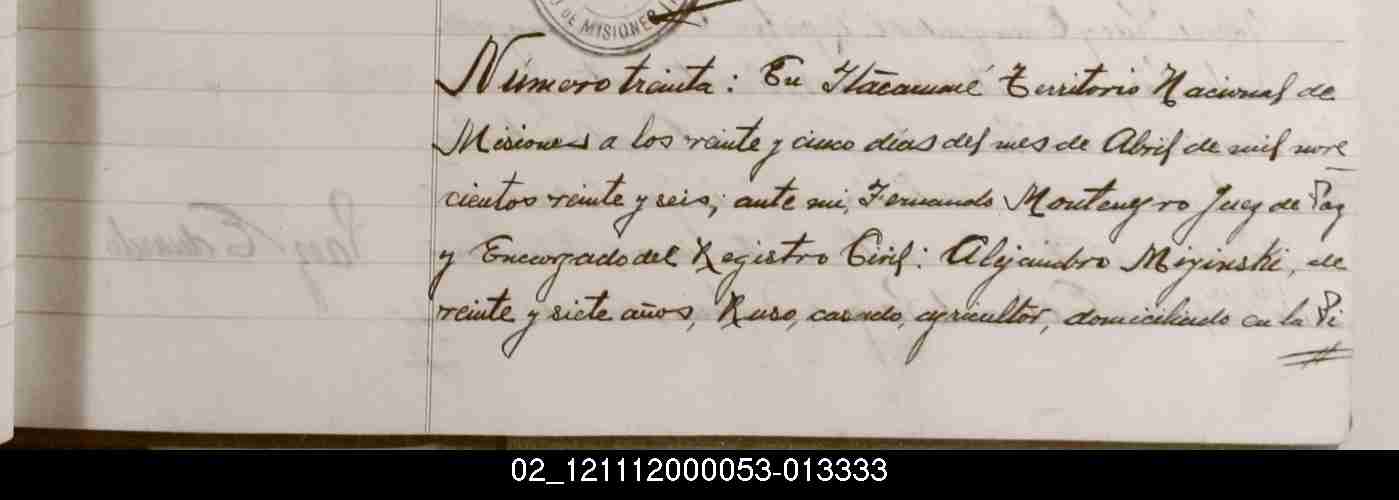 DE MISIONES
Número treinta: En Itacaruaré Territorio Nacional de
Misiones a los veinte y cinco días del mes de Abril de mil nove
cientos veinte y seis; ante mi, Fernando Montenegro Juez de Paz
y Encargado del Registro Civil: Alejandro Mizinski, de
veinte y siete años, Ruso, casado, agricultor, domiciliado en la Pi
02_121112000053-013333